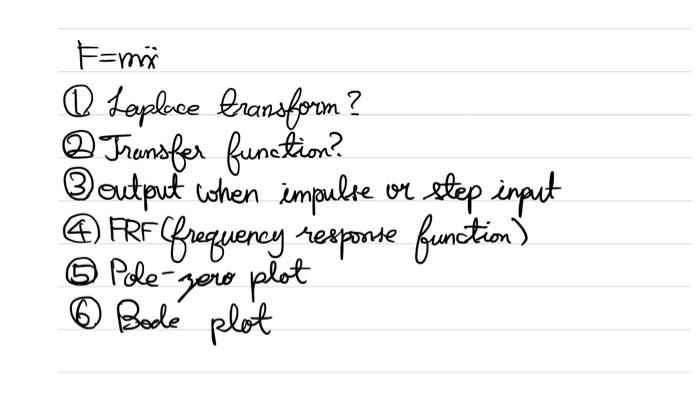 F=mẍ
① Laplace transform?
② Transfer function?
③ output when impulse or step input
④ FRF (frequency response function)
⑤ Pole-zero plot
⑥ Bode plot